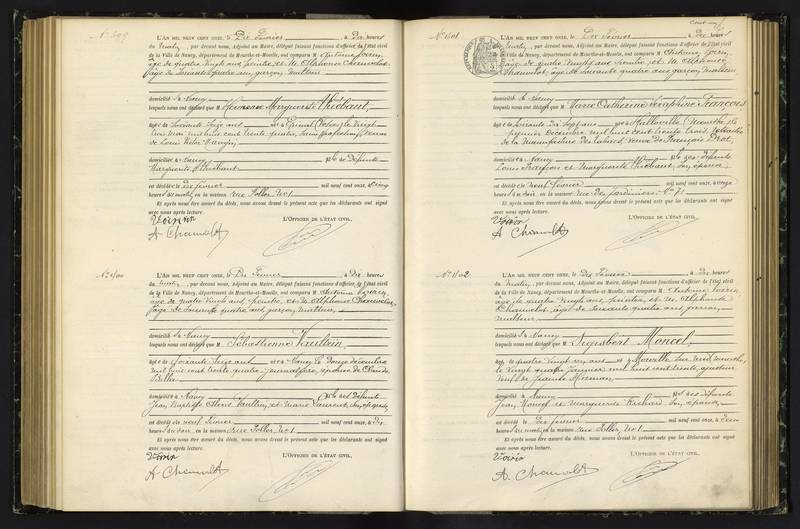 N° 399
L'AN MIL NEUF CENT ONZE, le Dix Février à Dix heures
du matin, par devant nous, Adjoint au Maire, délégué faisant fonctions d'officier de l'état civil
de la Ville de Nancy, département de Meurthe-et-Moselle, ont comparu M. Antoine
âgé de quatre vingt ans peintre, et M. Alphonse Chauvelot
âgé de soixante quatre ans garçon
domicilié à Nancy
lesquels nous ont déclaré que M. Marguerite Thiébaut,
âgé de soixante seize ans né à Épinal (Vosges) le vingt
mil huit cent trente quatre, sans profession, veuve
de Louis Victor
domicilié à Nancy de défunte
Marguerite Thiébaut
est décédé le dix février mil neuf cent onze, à cinq
heures du matin, en la maison rue Foller, N° 1
Et après nous être assuré du décès, nous avons dressé le présent acte que les déclarants ont signé
avec nous après lecture.
Voirin L'OFFICIER DE L'ÉTAT CIVIL,
A. Chauvelot
N° 400
L'AN MIL NEUF CENT ONZE, le Dix Février à Dix heures
du matin, par devant nous, Adjoint au Maire, délégué faisant fonctions d'officier de l'état civil
de la Ville de Nancy, département de Meurthe-et-Moselle, ont comparu M. Antoine Voirin
âgé de quatre vingt ans peintre, et M. Alphonse Chauvelot,
âgé de soixante quatre ans garçon
domicilié à Nancy
lesquels nous ont déclaré que M. Sébastienne Vautrin
âgé de soixante seize ans né à Nancy le douze décembre
mil huit cent trente quatre, journalière, épouse de Claude
Billa
domicilié à Nancy de défunts
Jean Baptiste Vautrin, et Marie Laurent, son épouse,
est décédé le neuf février mil neuf cent onze, à dix
heures du soir, en la maison rue Foller, N° 1
Et après nous être assuré du décès, nous avons dressé le présent acte que les déclarants ont signé
avec nous après lecture.
Voirin L'OFFICIER DE L'ÉTAT CIVIL,
A Chauvelot
N° 401
L'AN MIL NEUF CENT ONZE, le Dix Février à Dix heures
du matin, par devant nous, Adjoint au Maire, délégué faisant fonctions d'officier de l'état civil
de la Ville de Nancy, département de Meurthe-et-Moselle, ont comparu M. Antoine Voirin,
âgé de quatre vingt ans peintre et M. Alphonse
Chauvelot, âgé de soixante quatre ans garçon
domicilié à Nancy
lesquels nous ont déclaré que M. Marie Catherine Séraphine François
âgé de soixante dix sept ans né à Halloville (Meurthe) le
premier décembre mil huit cent trente trois, retraitée
de la Manufacture des tabacs, veuve de François Drot,
domicilié à Nancy de défunts
Louis François et Marguerite Thiébaut, son épouse,
est décédé le neuf février mil neuf cent onze, à onze
heures du soir, en la maison rue des Jardiniers, N° 71
Et après nous être assuré du décès, nous avons dressé le présent acte que les déclarants ont signé
avec nous après lecture.
Voirin L'OFFICIER DE L'ÉTAT CIVIL,
A Chauvelot
N° 402
L'AN MIL NEUF CENT ONZE, le Dix Février à Dix heures
du matin, par devant nous, Adjoint au Maire, délégué faisant fonctions d'officier de l'état civil
de la Ville de Nancy, département de Meurthe-et-Moselle, ont comparu M. Antoine Voirin
âgé de quatre vingt ans, peintre, et M. Alphonse
Chauvelot, âgé de soixante quatre ans garçon,
domicilié à Nancy
lesquels nous ont déclaré que M. Sigisbert Moncel,
âgé de quatre vingt un ans né à Morville sur Meurthe,
le vingt quatre janvier mil huit cent trente, ajusteur
veuf de
domicilié à Nancy de défunts
Jean Moncel et Marguerite Richard son épouse,
est décédé le dix février mil neuf cent onze, à deux
heures du matin, en la maison rue Foller, N° 1
Et après nous être assuré du décès, nous avons dressé le présent acte que les déclarants ont signé
avec nous après lecture.
Voirin L'OFFICIER DE L'ÉTAT CIVIL,
A. Chauvelot